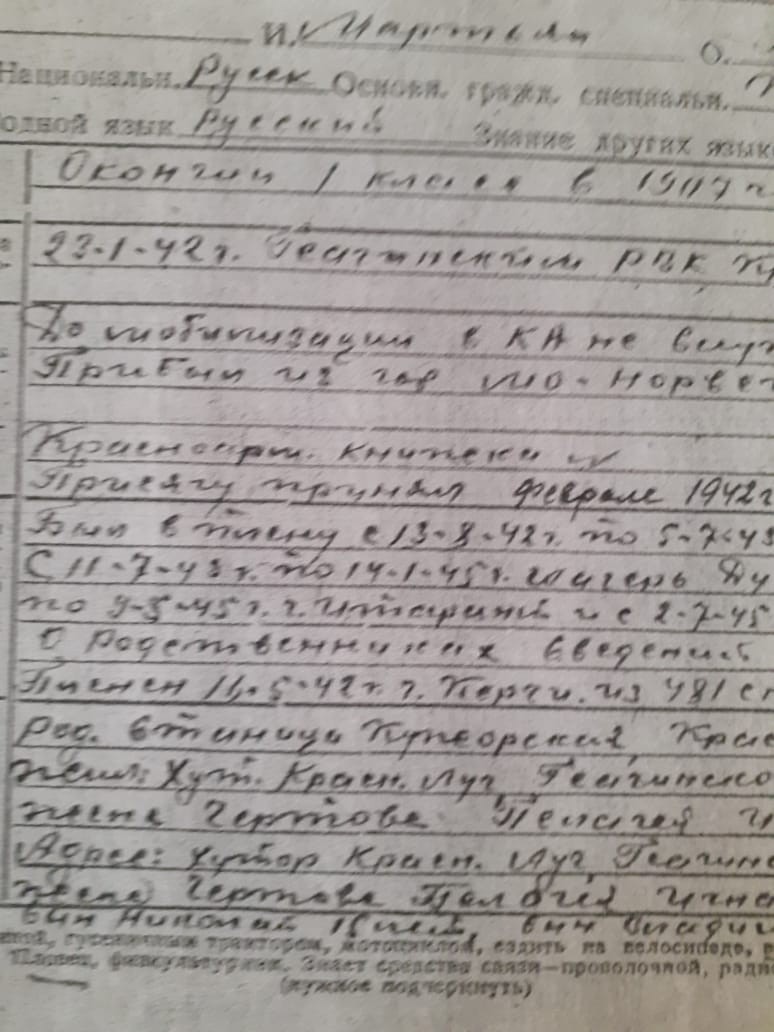 И. Мартын О.
Национальн. Русск Основн. гражд. специальн.
одной язык Русский Знание других язык
Окончил 1 класса в 1907 г
23-1-42 г. РВК
До мобилизации в КА не служ
Прибыл из гор Норвег
Красноарм. книжека
Присягу принял феврале 1942 г
Был в плену с 13-8-42 г. по 5-7-43
С 11-7-43 г. по 14-1-45 г. лагерь
по 9-5-45 г. г. и с 2-7-45
О родственниках сведений
Пленен 11-5-42 г. г. Керчи. из 481 сп
Род. станица Крас
жил: Хут. Красн. Луч
жена Чертова Пелагея И
Адрес: хутор Красн. Луч
жена Чертова
сын Николай сын Влади
ной, гусеничным трактором, мотоциклом, ездить на велосипеде,
Пловец, физкультурник. Знает средства связи—проволочной, радио
(нужное подчеркнуть)